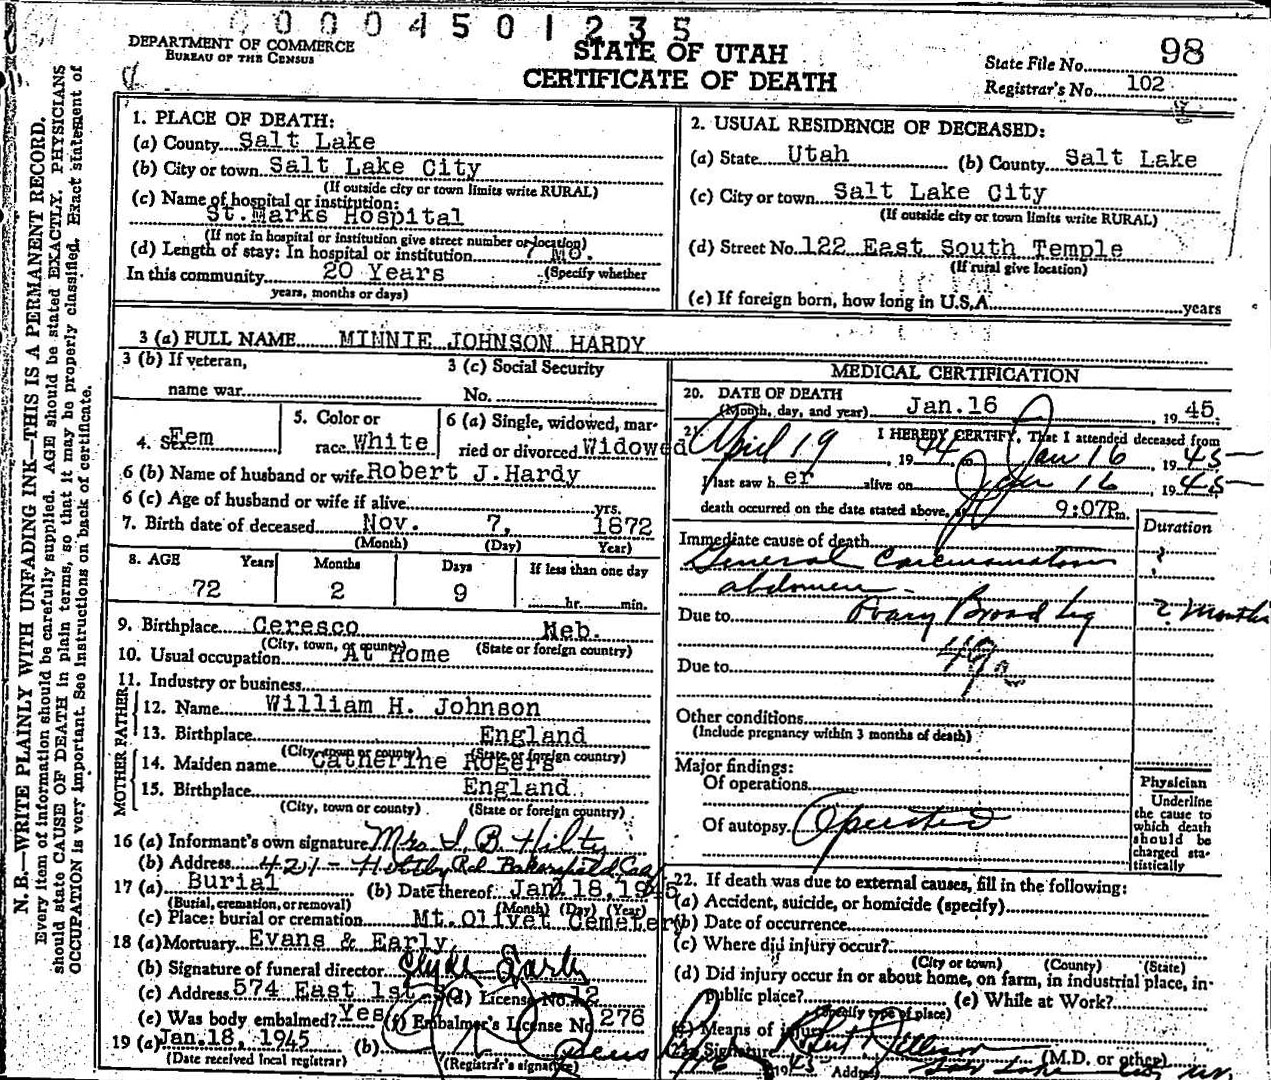 0004501235
DEPARTMENT OF COMMERCE
BUREAU OF THE CENSUS
STATE OF UTAH
CERTIFICATE OF DEATH
State File No. 98
Registrar's No. 102
N. B.—WRITE PLAINLY WITH UNFADING INK—THIS IS A PERMANENT RECORD.
Every item of information should be carefully supplied. AGE should be stated EXACTLY. PHYSICIANS
should state CAUSE OF DEATH in plain terms, so that it may be properly classified. Exact statement of
OCCUPATION is very important. See instructions on back of certificate.
1. PLACE OF DEATH:
(a) County Salt Lake
(b) City or town Salt Lake City
(If outside city or town limits write RURAL)
(c) Name of hospital or institution:
St. Marks Hospital
(If not in hospital or institution give street number or location)
(d) Length of stay: In hospital or institution Mo.
In this community 20 Years (Specify whether
years, months or days)
2. USUAL RESIDENCE OF DECEASED:
(a) State Utah (b) County Salt Lake
(c) City or town Salt Lake City
(If outside city or town limits write RURAL)
(d) Street No. 122 East South Temple
(If rural give location)
(e) If foreign born, how long in U.S.A. years
3 (a) FULL NAME MINNIE JOHNSON HARDY
3 (b) If veteran,
name war
3 (c) Social Security
No.
4. Sex Fem
5. Color or
race White
6 (a) Single, widowed, mar-
ried or divorced Widowed
6 (b) Name of husband or wife Robert J. Hardy
6 (c) Age of husband or wife if alive yrs.
7. Birth date of deceased Nov. 7, 1872
(Month) (Day) (Year)
8. AGE Years Months Days If less than one day
72 2 9 hr. min.
9. Birthplace Ceresco Neb.
(City, town, or county) (State or foreign country)
10. Usual occupation At Home
11. Industry or business
FATHER
12. Name William H. Johnson
13. Birthplace England
(City, town or county) (State or foreign country)
MOTHER
14. Maiden name Catherine Rogers
15. Birthplace England
(City, town or county) (State or foreign country)
16 (a) Informant's own signature Mrs. I. B. Hilty
(b) Address 421 - Rd Bakersfield, Cal
17 (a) Burial (b) Date thereof Jan. 18, 1945
(Burial, cremation, or removal) (Month) (Day) (Year)
(c) Place: burial or cremation Mt. Olivet Cemetery
18 (a) Mortuary Evans & Early,
(b) Signature of funeral director Clyde Early
(c) Address 574 East 1st So (d) License No. 12
(e) Was body embalmed? Yes (f) Embalmer's License No. 276
19 (a) Jan. 18, 1945 (b)
(Date received local registrar) (Registrar's signature)
MEDICAL CERTIFICATION
20. DATE OF DEATH
(Month, day, and year) Jan. 16 1945.
21. I HEREBY CERTIFY, That I attended deceased from
April 19, 1944 to Jan 16, 1945
I last saw her alive on Jan 16, 1945
death occurred on the date stated above, at 9:07P m.
Duration
Immediate cause of death
General Carcinomatosis
abdomen
Due to Ovary Broad Lig ? Months
Due to
Other conditions
(Include pregnancy within 3 months of death)
Major findings:
Of operations
Of autopsy Operated
Physician
Underline
the cause to
which death
should be
charged sta-
tistically
22. If death was due to external causes, fill in the following:
(a) Accident, suicide, or homicide (specify)
(b) Date of occurrence
(c) Where did injury occur?
(City or town) (County) (State)
(d) Did injury occur in or about home, on farm, in industrial place, in-
public place? (e) While at Work?
(Specify type of place)
(f) Means of injury
Signature (M.D. or other)
1945 Address Salt Lake City, Ut.